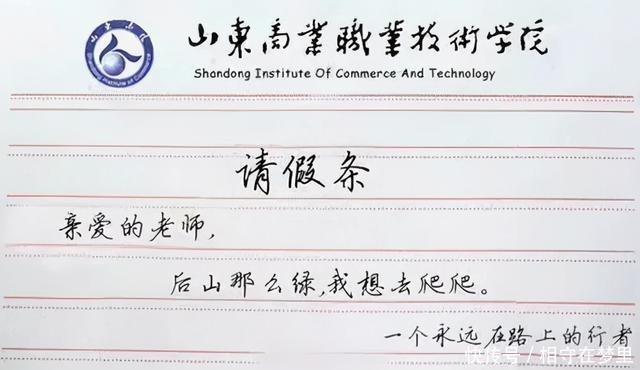 山东商业职业技術学院
Shandong Institute Of Commerce And Technology
请假条
亲爱的老师，
后山那么绿，我想去爬爬。
一个永远在路上的行者
快传号／相守在梦里